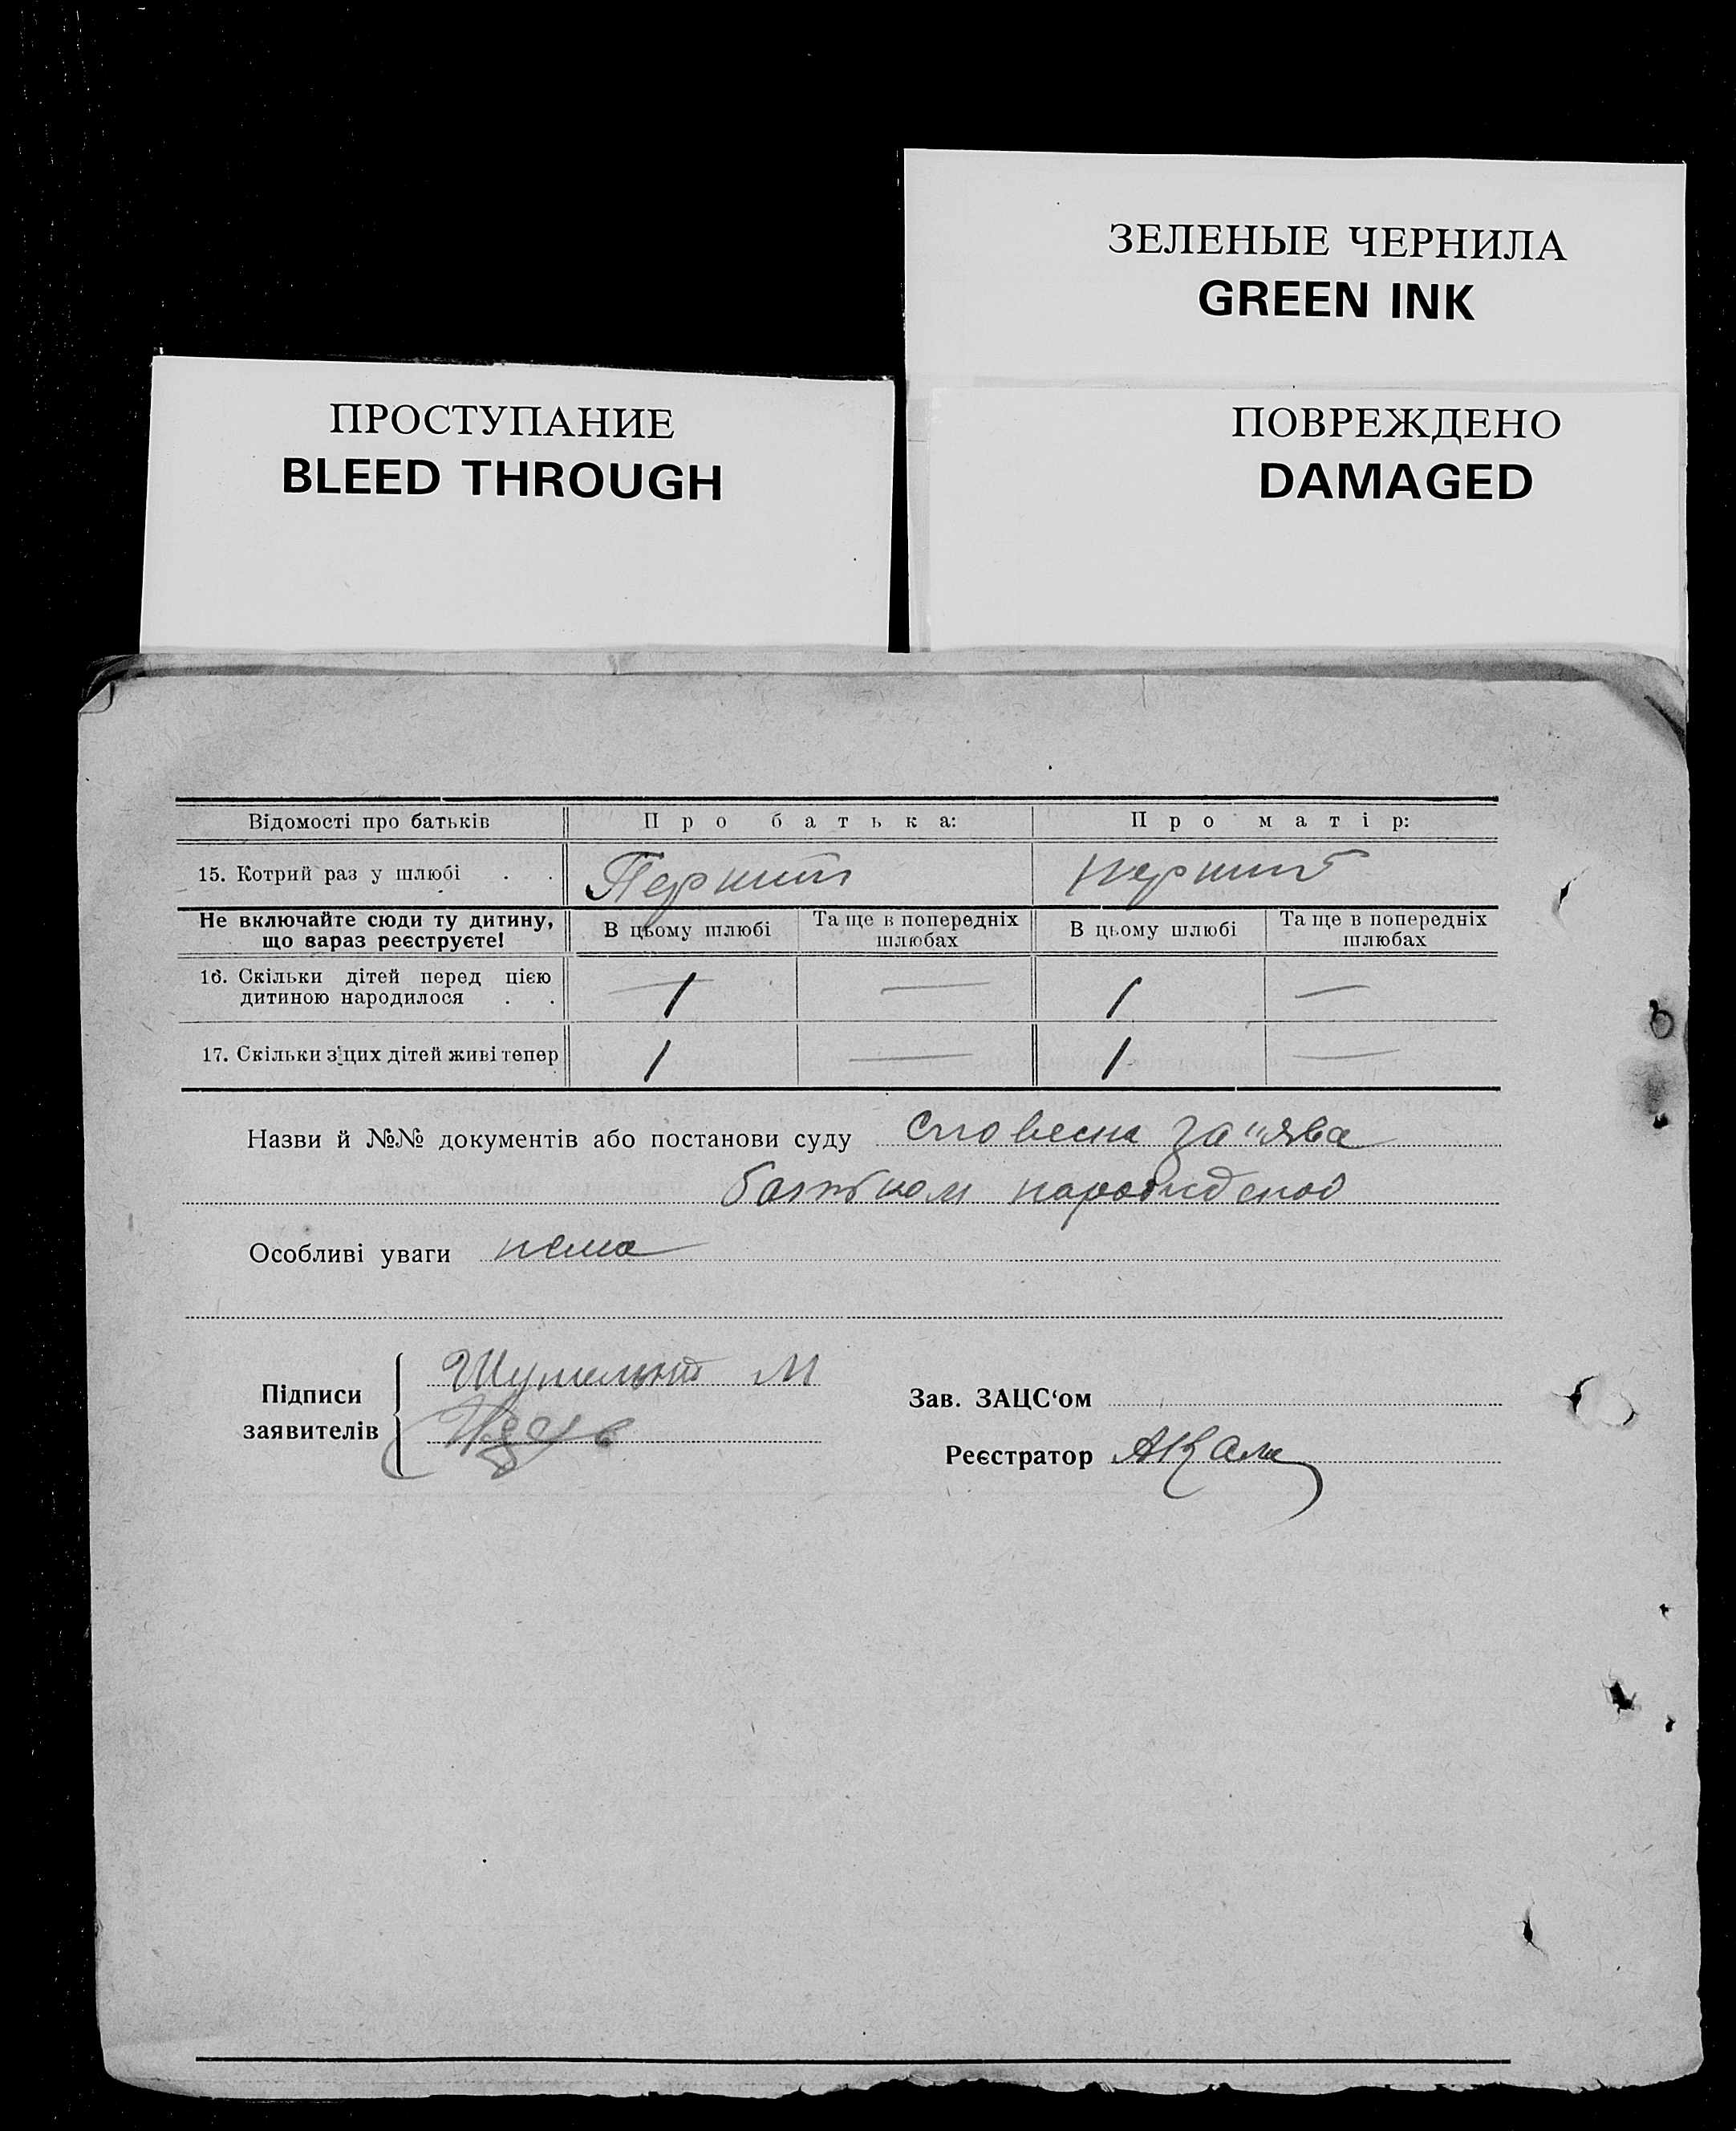 ЗЕЛЕНЫЕ ЧЕРНИЛА
GREEN INK
ПРОСТУПАНИЕ
BLEED THROUGH
ПОВРЕЖДЕНО
DAMAGED
Відомості про батьків Про батька: Про матір:
15. Котрий раз у шлюбі . . Перший перший
Не включайте сюди ту дитину, що вараз реєструєте! В цьому шлюбі Та ще в попередніх шлюбах В цьому шлюбі Та ще в попередніх шлюбах
16. Скільки дітей перед цією дитиною народилося . . 1 — 1 —
17. Скільки з'цих дітей живі тепер 1 — 1 —
Назви й №№ документів або постанови суду словесна за"ява
батьком
Особливі уваги нема
Підписи заявителів М
Зав. ЗАЦС‘ом
Реєстратор